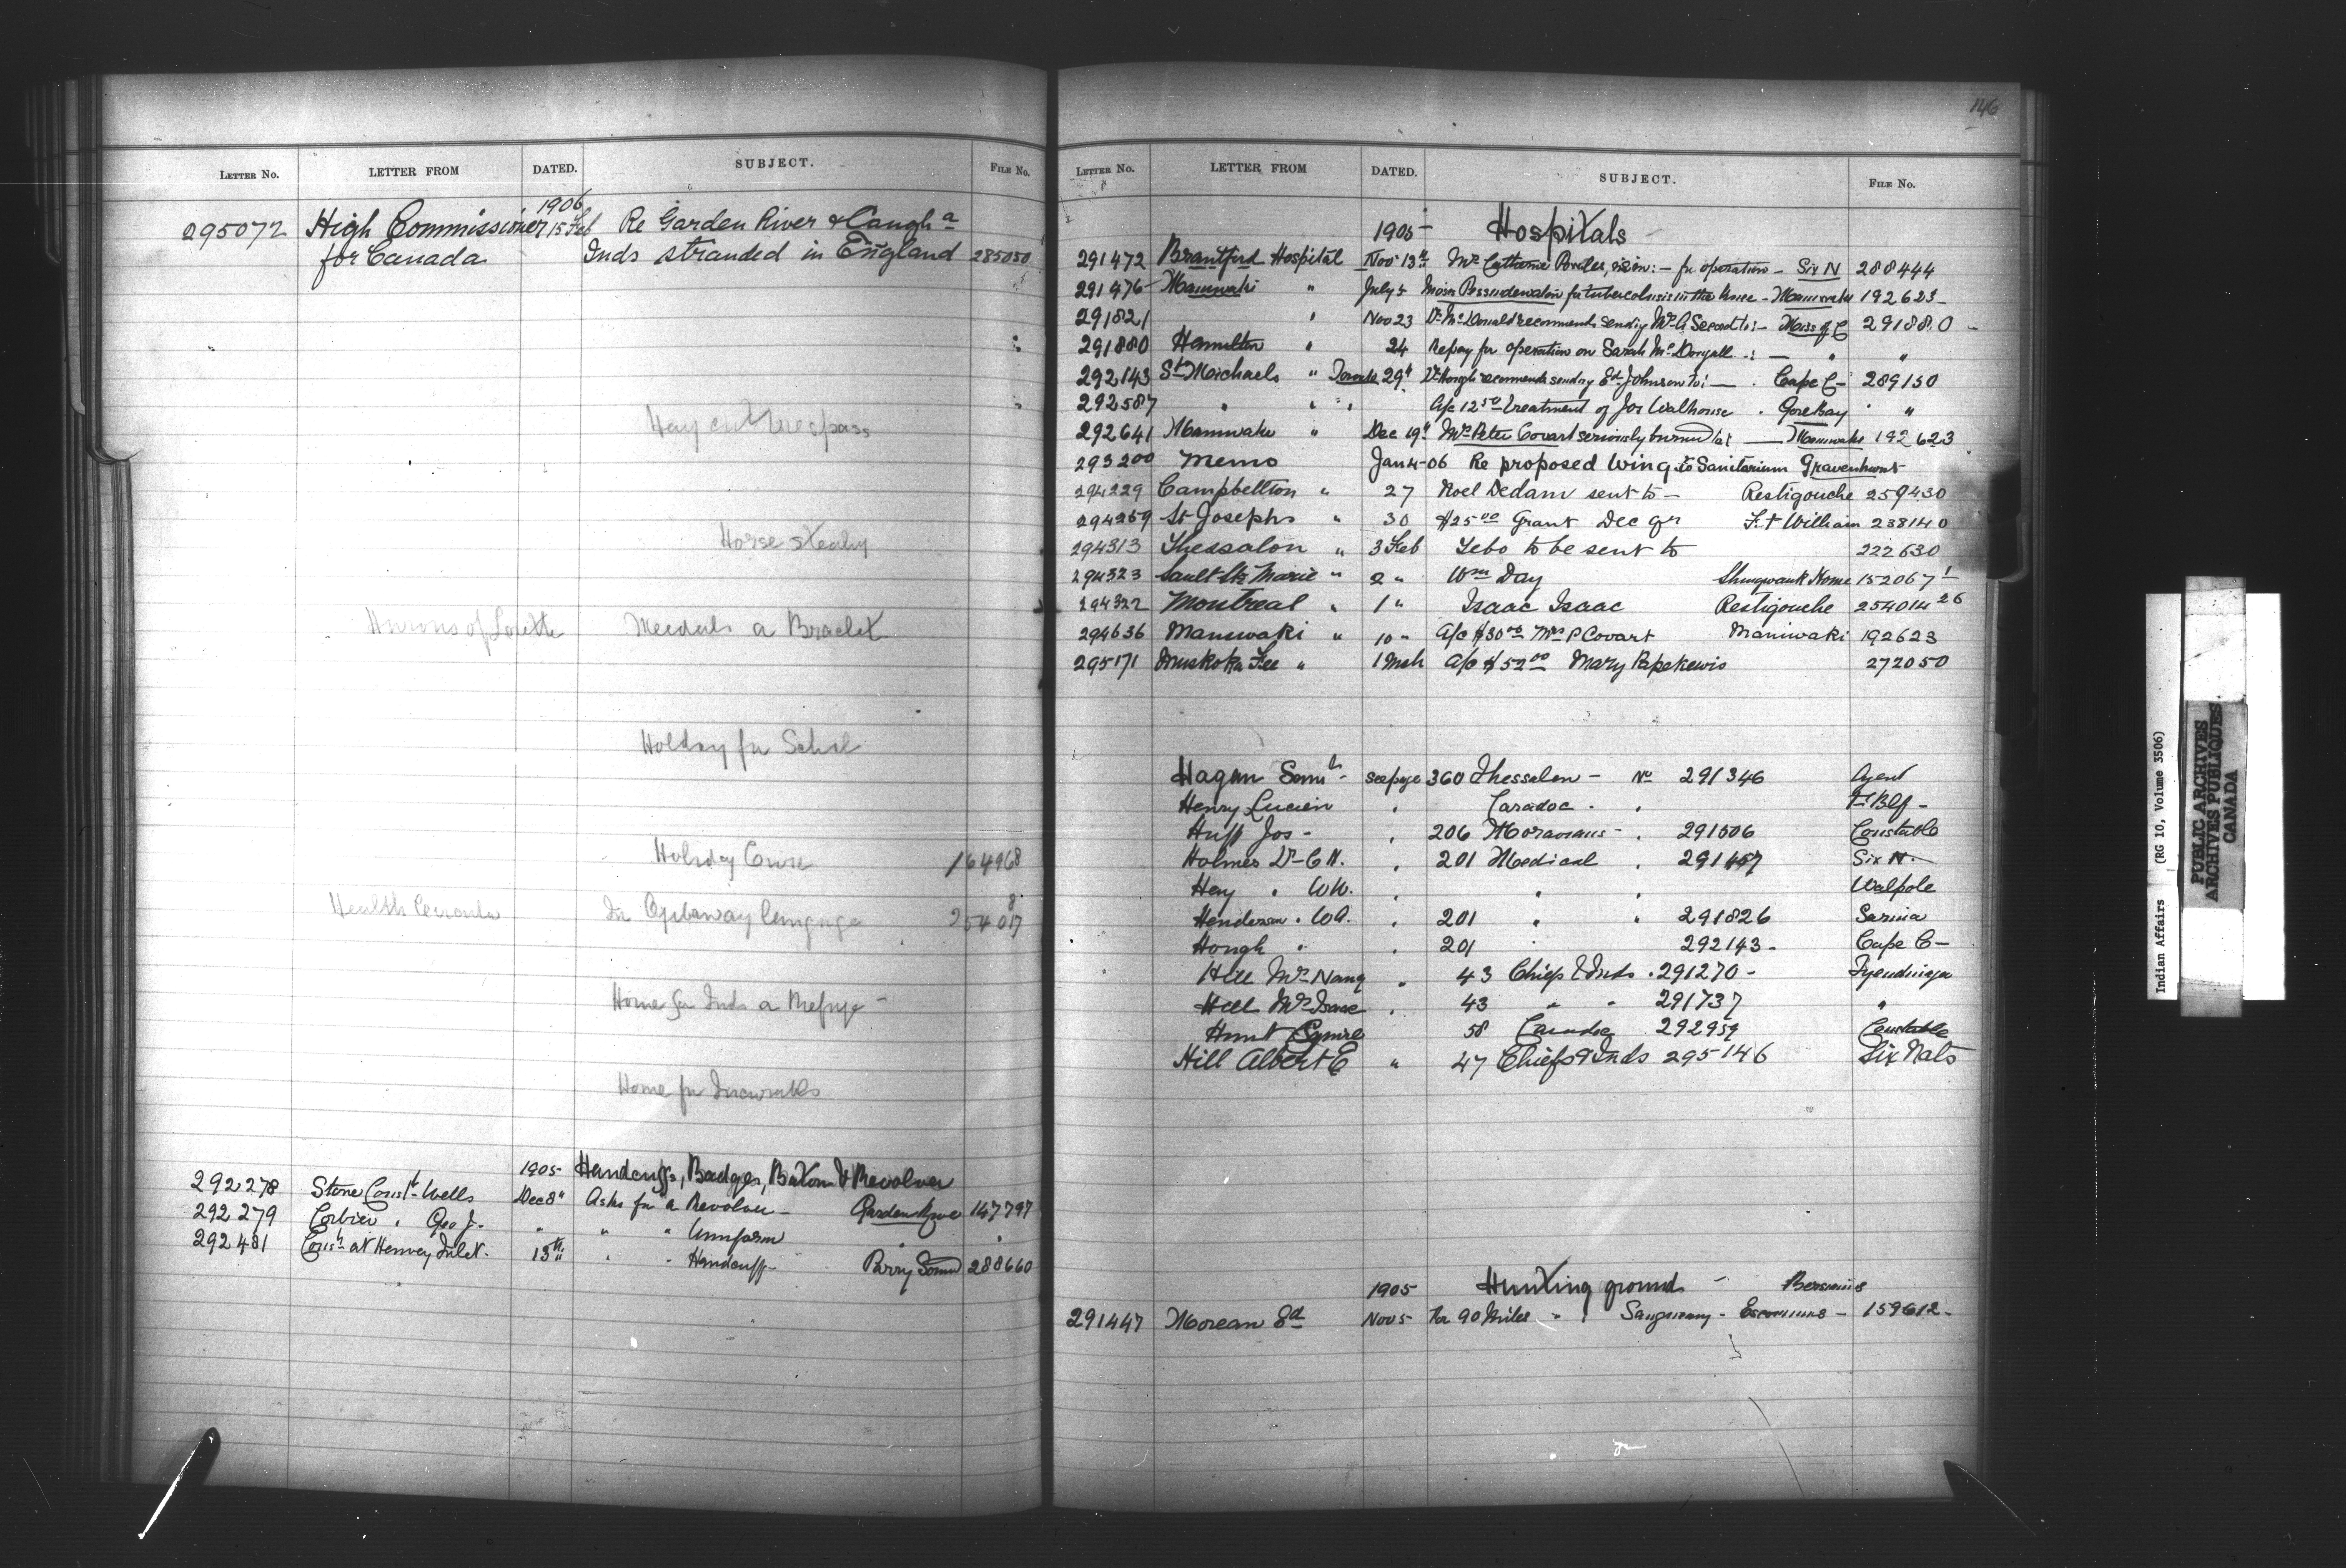 LETTER NO. LETTER FROM DATED. SUBJECT. FILE NO.
1906
295072 High Commissioner 15 Feb Re Garden River & Caugha
for Canada Inds stranded in England 285050
Hay cut trespass
Horse stealing
Hurons of Lorette Medals a Bracelet
Holiday for School
Holiday Cruise 164968
8
Health Circular In Ojibaway language 254017
Home for Inds a Refuge -
Home for Incurables
1905 Handcuffs, Badges, Baton & Revolver
292278 Stone Const. Wells Dec 8" Asks for a Revolver - Garden River 147797
292279 Corbier " Geo J. " " " Uniform " "
292481 Const at Henvey Inlet. 13th " " Handcuffs - Parry Sound 288660
146
LETTER NO. LETTER FROM DATED. SUBJECT. FILE NO.
1905 Hospitals
291472 Brantford Hospital Nov 13th Mrs Catherine Powles, :- for operation - Six N 288444
291476 Maniwaki " July 5 Moise for tuberculosis in the knee - Maniwaki 192623
291821 " Nov 23 Dr McDonald recommends sending Mrs A Secord to :- Miss of C 291880 -
291880 Hamilton " 24 Re pay for operation on Sarah McDougall :- " "
292143 St Michaels " Toronto 29th Dr Hough recommends sending Ed Johnson to :- Cape C- 289150
292587 " " " A/c 12.50 treatment of Jos Walhouse . Gore Bay "
292641 Maniwaki " Dec 19th Mrs Peter Covart seriously burned to: - Maniwaki 192623
293200 Memo Jan 4-06 Re proposed Wing to Sanitarium Gravenhurst
294229 Campbellton " 27 Noel Dedam sent to - Restigouche 259430
294269 St Josephs " 30 $25.00 Grant Dec Qr Ft William 238140
294313 Thessalon " 3 Feb Tebo to be sent to 222630
294323 Sault Ste Marie " 2 " Wm Day Shingwauk Home 152067-1
294322 Montreal " 1 " Isaac Isaac Restigouche 254014-26
294636 Maniwaki " 10 " A/c $30.00 Mrs P Covart Maniwaki 192623
295171 Muskoka Free " 1 Mch A/c $52.00 Mary Papekewis 272050
Hagan Saml - see page 360 Thessalon - No 291346 Agent
Henry Lucien " Caradoc . "
Huff Jos - " 206 Moravians - " 291506 Constable
Holmes Dr C H. " 201 Medical " 291457 Six N.
Hay " W W. " " " Walpole
Henderson " W A. " 201 " " 291826 Sarnia
Hough " " 201 292143 - Cape C-
Hill Mrs Nancy " 43 Chiefs & Inds . 291270 - Tyendinaga
Hill Mrs Isaac " 43 " " 291737 "
Hunt 58 Caradoc 292959 Constable
Hill Albert E " 47 Chiefs & Inds 295146 Six Nats
1905 Hunting ground - Bersimis
291447 Moreau Ed Nov 5 for 90 Miles " Sauguenay - Escoumins - 159612 -
Indian Affairs (RG 10, Volume 3506)
PUBLIC ARCHIVES
ARCHIVES PUBLIQUES
CANADA